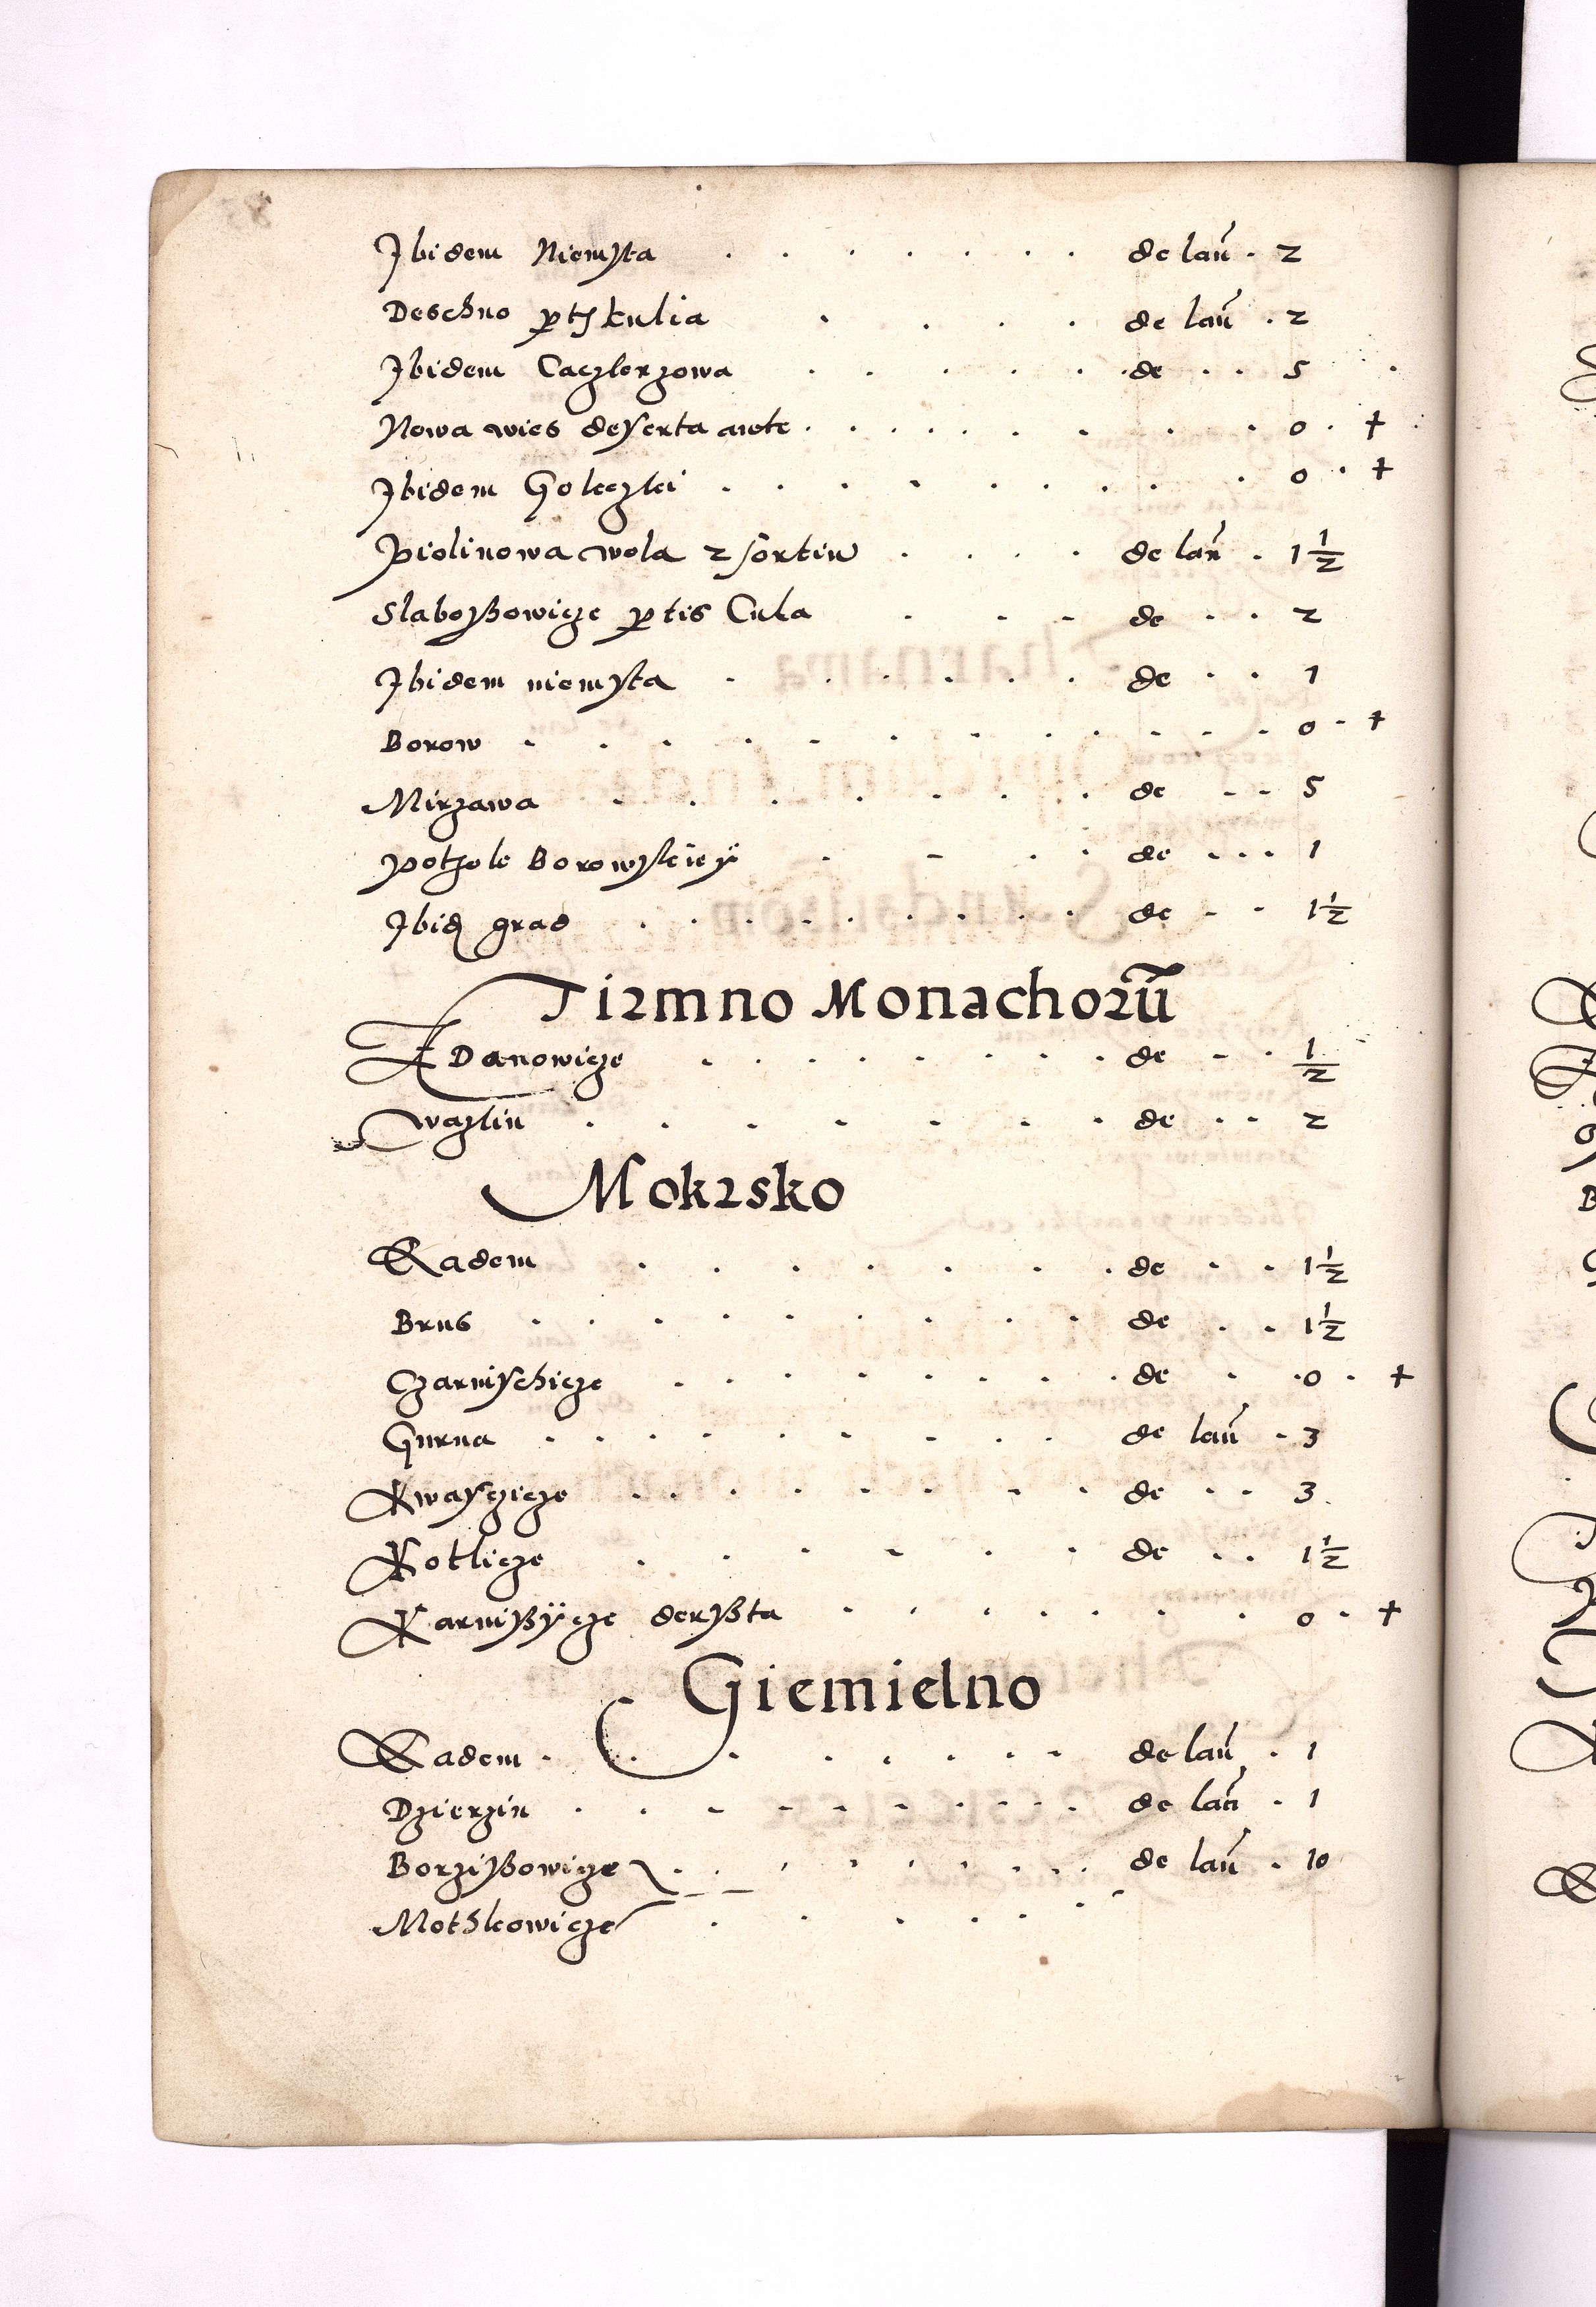 Ibidem Niemsta . . . . . . . de lan̄ . 2
Deschno ptis kulia . . . . de lan̄ . 2
Ibidem Caczlerzowa . . . . . de . . 5
Nowa wies deserta ante . . . . . . . . . 0 . †
Ibidem Goleczki . . . . . . . . . 0 . †
Piolinowa wola 2 sortiu . . . . de lan̄ . 1 1/2
Slaboszowicze ptis Cula . . . de . . 2
Ibidem niemsta . . . . . . de . . 1
Borow . . . . . . . . . . . . 0 . †
Mirzawa . . . . . . . de . . 5
Potzole Borowskieÿ . . . . de . . . 1
Ibid grad . . . . . . . . de . . 1 1/2
Tirmno Monachorū
Adanowicze . . . . . . . . de . . 1/2
Wazlin . . . . . . . de . . 2
Mokrsko
Eadem . . . . . . . de . . 1 1/2
Brus . . . . . . . . . de . . 1 1/2
Czarnischicze . . . . . . . . de . 0 . †
Gurna . . . . . . . . . de lan̄ . 3
Kwasczicze . . . . . . . . de . . 3
Kotlicze . . . . . . de . . 1 1/2
Karnißÿcze derßta . . . . . . . 0 . †
Giemielno
Eadem . . . . . . . . de lan̄ . 1
Dzierzin . . . . . . . . . de lan̄ . 1
Borzißowicze . . . . . . . . de lan̄ . 10
Mothkowicze . . . . . .